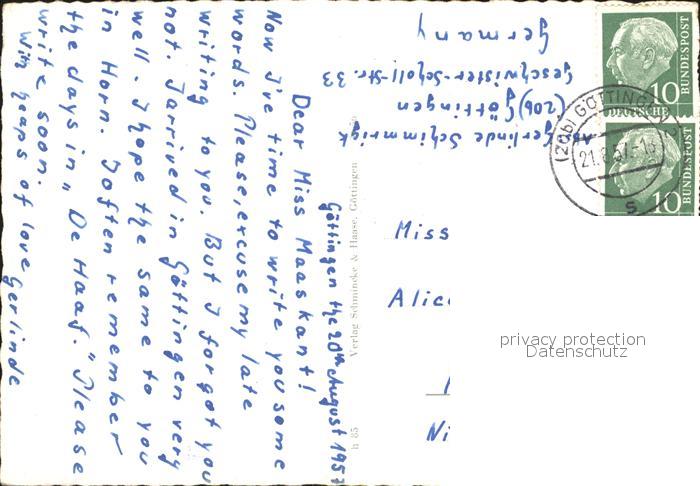 Göttingen the 20th August 1957
Dear Miss Maaskant!
Now I've time to write you some
words. Please, excuse my late
writing to you. But I forgot you
not. I arrived in Göttingen very
well. I hope the same to you
in Horn. I often remember
the days in „De Haaf." Please
write soon.
With heaps of love
Gerlinde
Verlag Schmincke & Haase, Göttingen
h 85
Gerlinde Schimmrigk
(20b) Göttingen
Geschwister-Scholl-Str. 33
Germany
Miss
Alic
Ni
10
DEUTSCHE
BUNDESPOST
10
BUNDESPOST
(20b) GÖTTINGEN
21.8.57.-18
s
privacy protection
Datenschutz